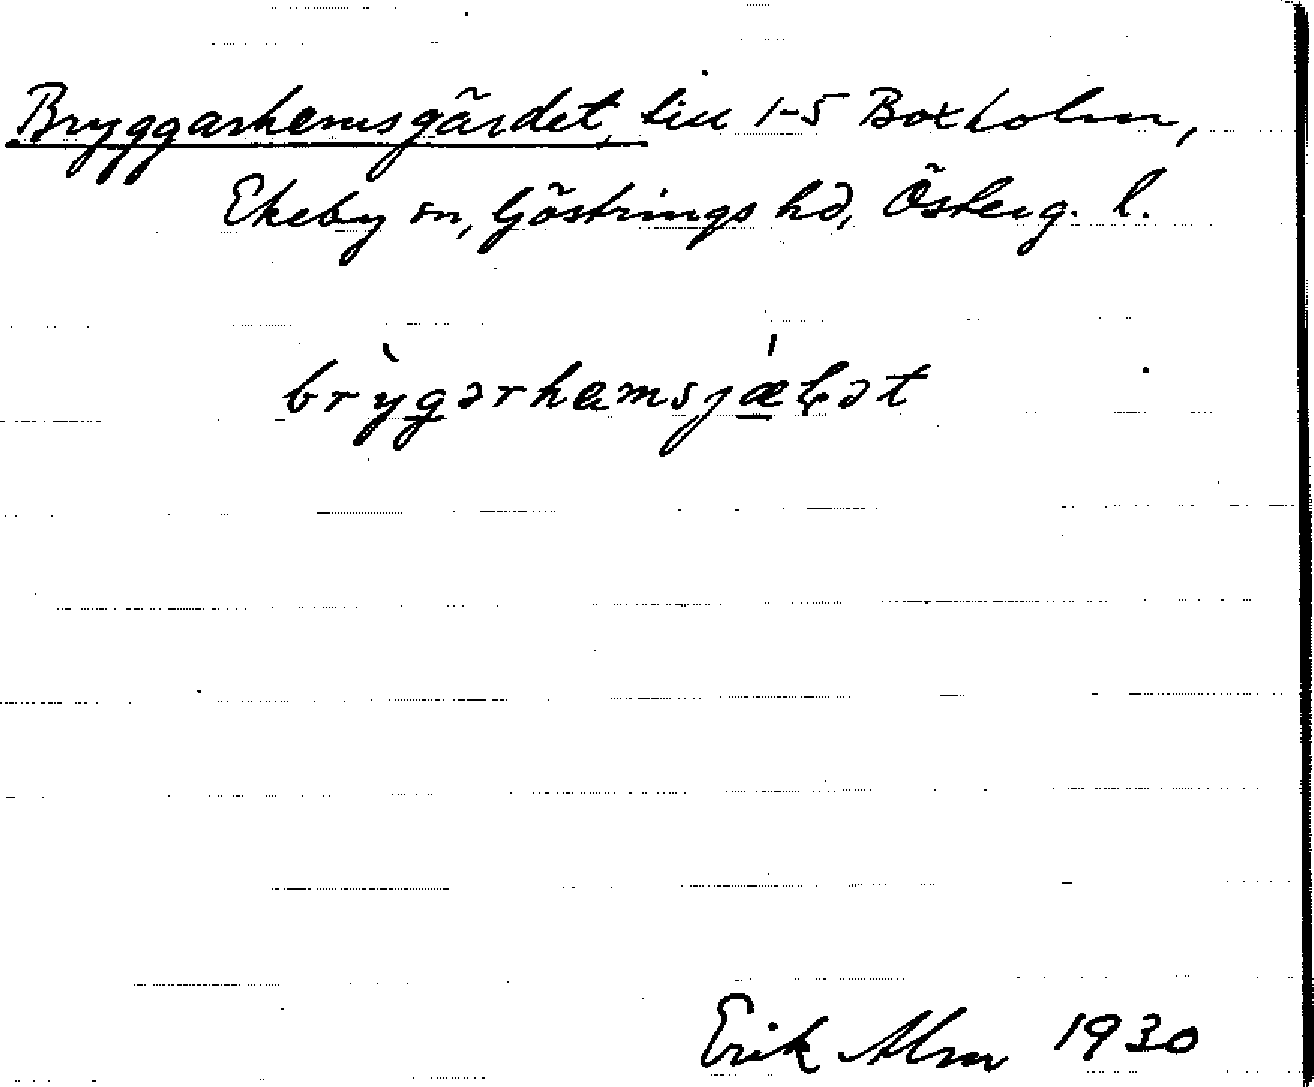 Bryggarhemsgärdet, till 1-5 Boxholm,
Ekeby sn, Göstrings hd, Österg. l.
brỳgərhemsjǽɽət
Erik Alm 1930